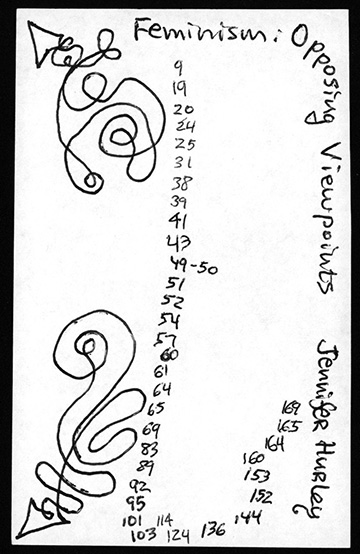 Feminism: Opposing Viewpoints
Jennifer Hurley
9
19
20
24
25
31
38
39
41
43
49-50
51
52
54
57
60
61
64
65
69
83
89
92
95
101
103
114
124
136
144
152
153
160
164
165
169